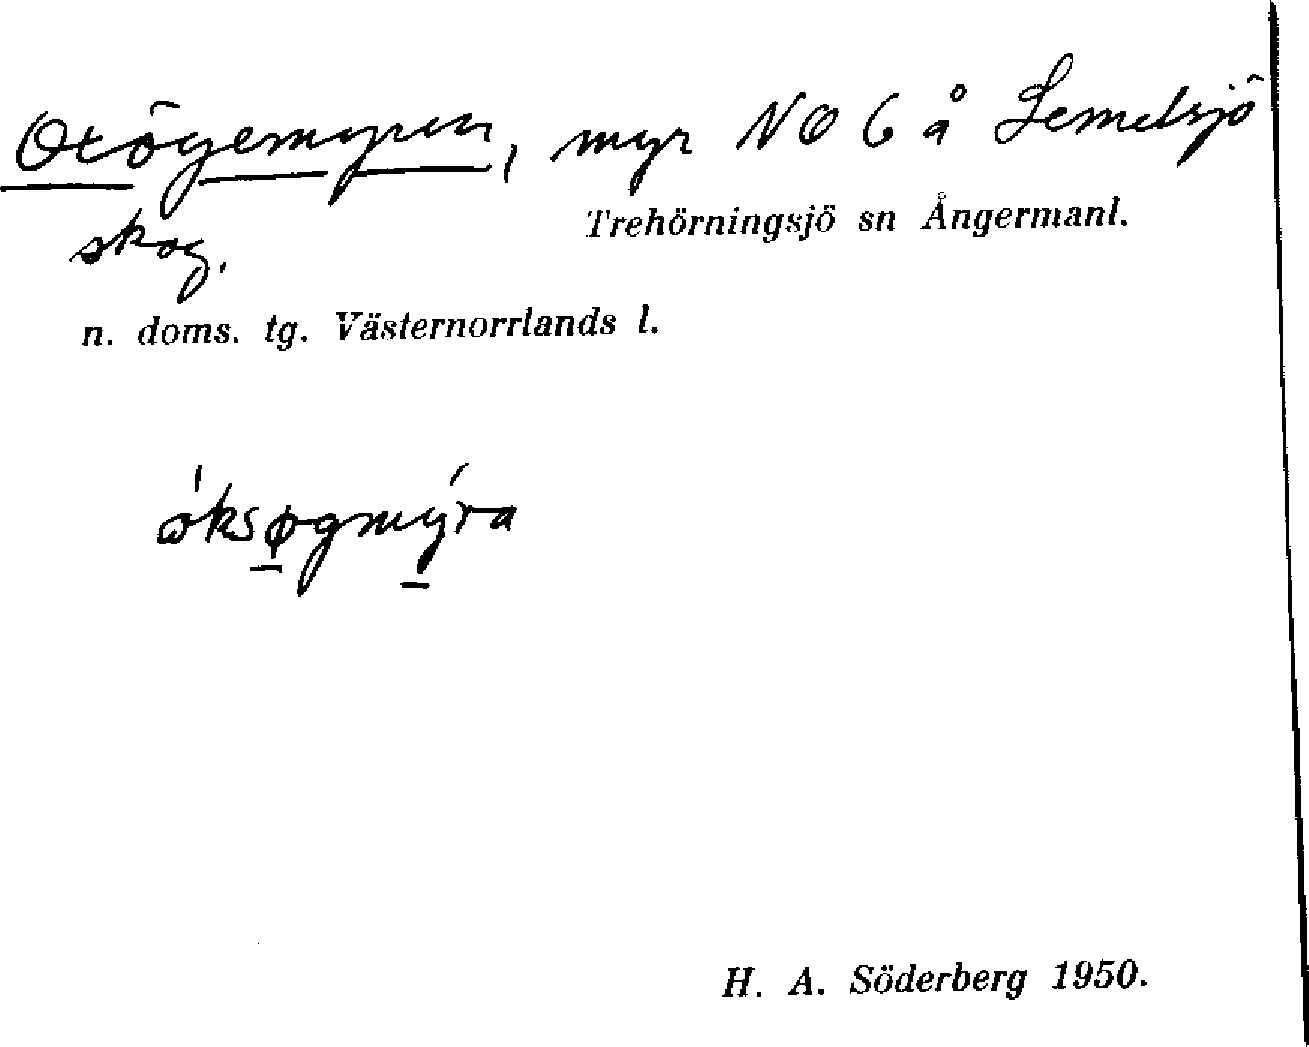 Oxögemyren, myr NO 6 å Lemelsjö
Trehörningsjö sn Ångermanl.
skog.
n. doms. tg. Västernorrlands l.
óksøgmýra
H. A. Söderberg 1950.